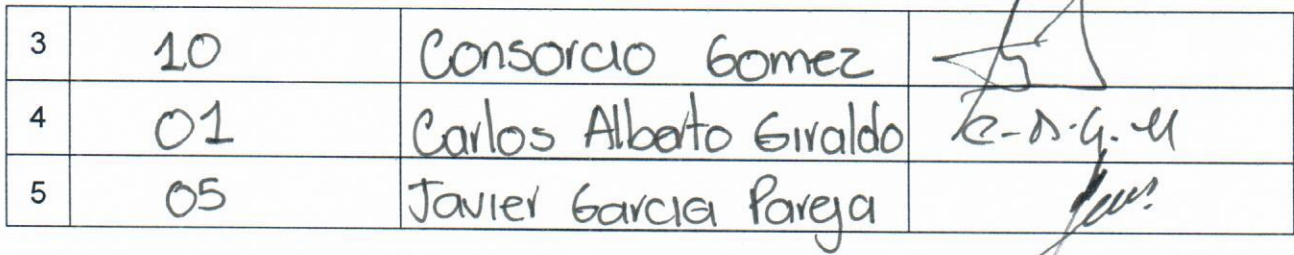 3 10 Consorcio Gomez
4 01 Carlos Alberto Giraldo C-A.G.M
5 05 Javier Garcia Pareja